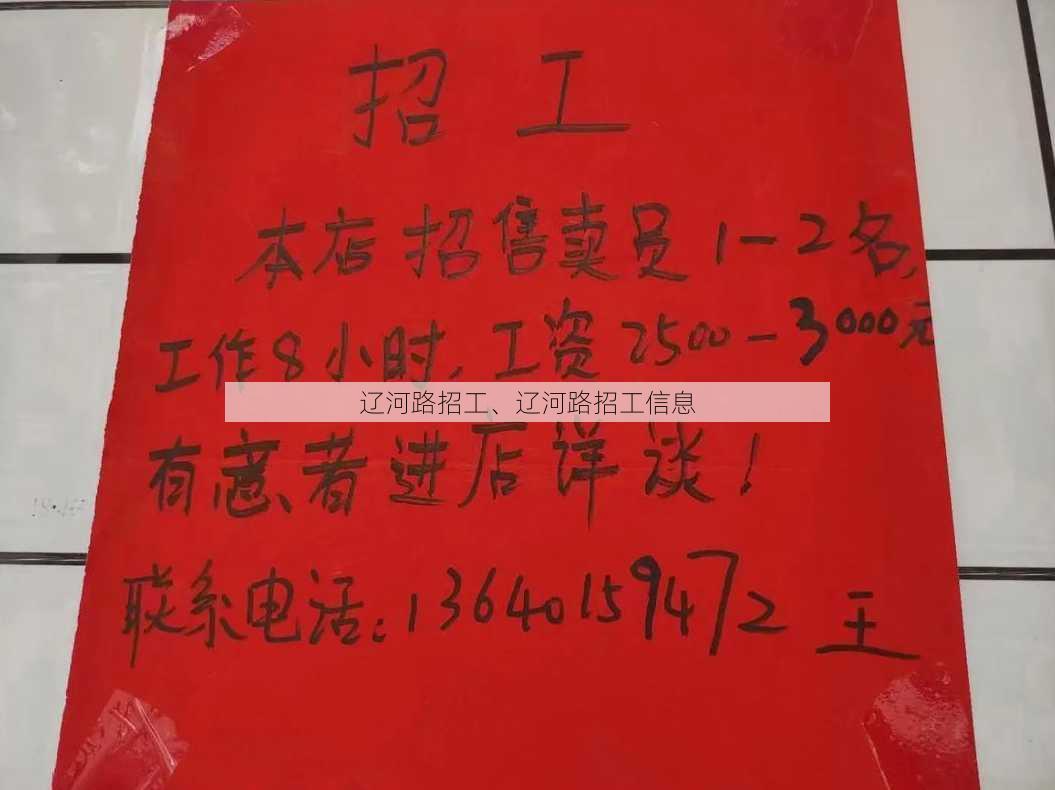 招工
本店招售卖员1-2名,
工作8小时,工资2500-3000元
辽河路招工、辽河路招工信息
有意者进店详谈!
联系电话:13640159472 王